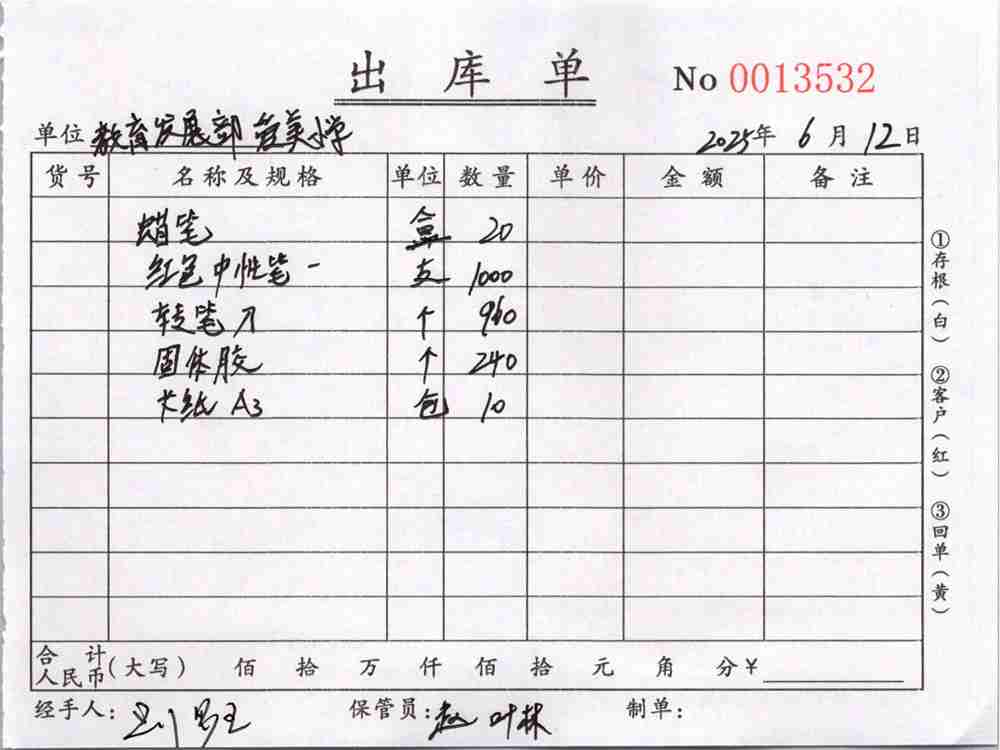 出库单 No 0013532
单位 教育发展部 美小学 2025年 6月 12日
货号 名称及规格 单位 数量 单价 金额 备注
蜡笔 盒 20
红色中性笔 支 1000
转笔刀 个 960
固体胶 个 240
卡纸 A3 包 10
合计人民币(大写) 佰 拾 万 仟 佰 拾 元 角 分¥
经手人: 刘 保管员: 赵叶林 制单:
①存根(白) ②客户(红) ③回单(黄)